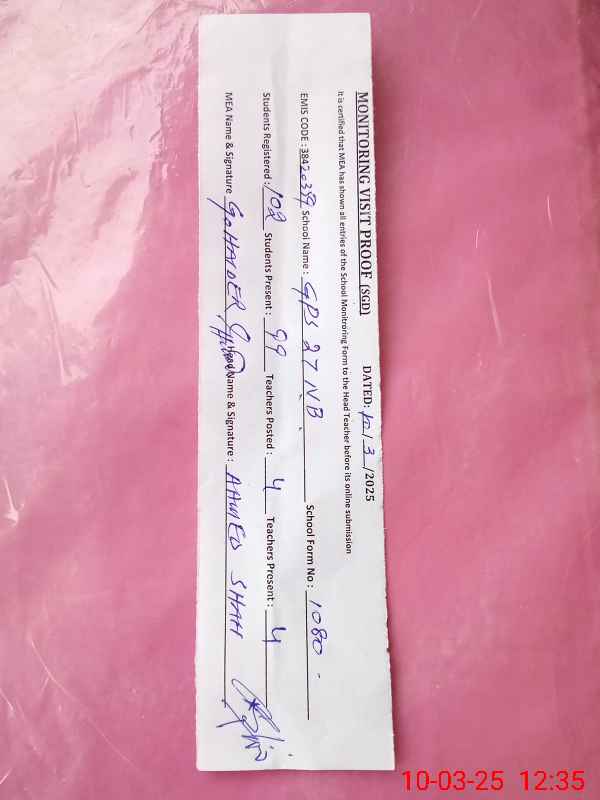 MONITORING VISIT PROOF (SGD) DATED: 10/3/2025
It is certified that MEA has shown all entries of the School Monitroring Form to the Head Teacher before its online submission
EMIS CODE : 38420399 School Name : GPS 27 NB School Form No : 1080
Students Registered : 102 Students Present : 99 Teachers Posted : 4 Teachers Present : 4
MEA Name & Signature HAIDER Head Name & Signature : AHMED SHAH
10-03-25 12:35